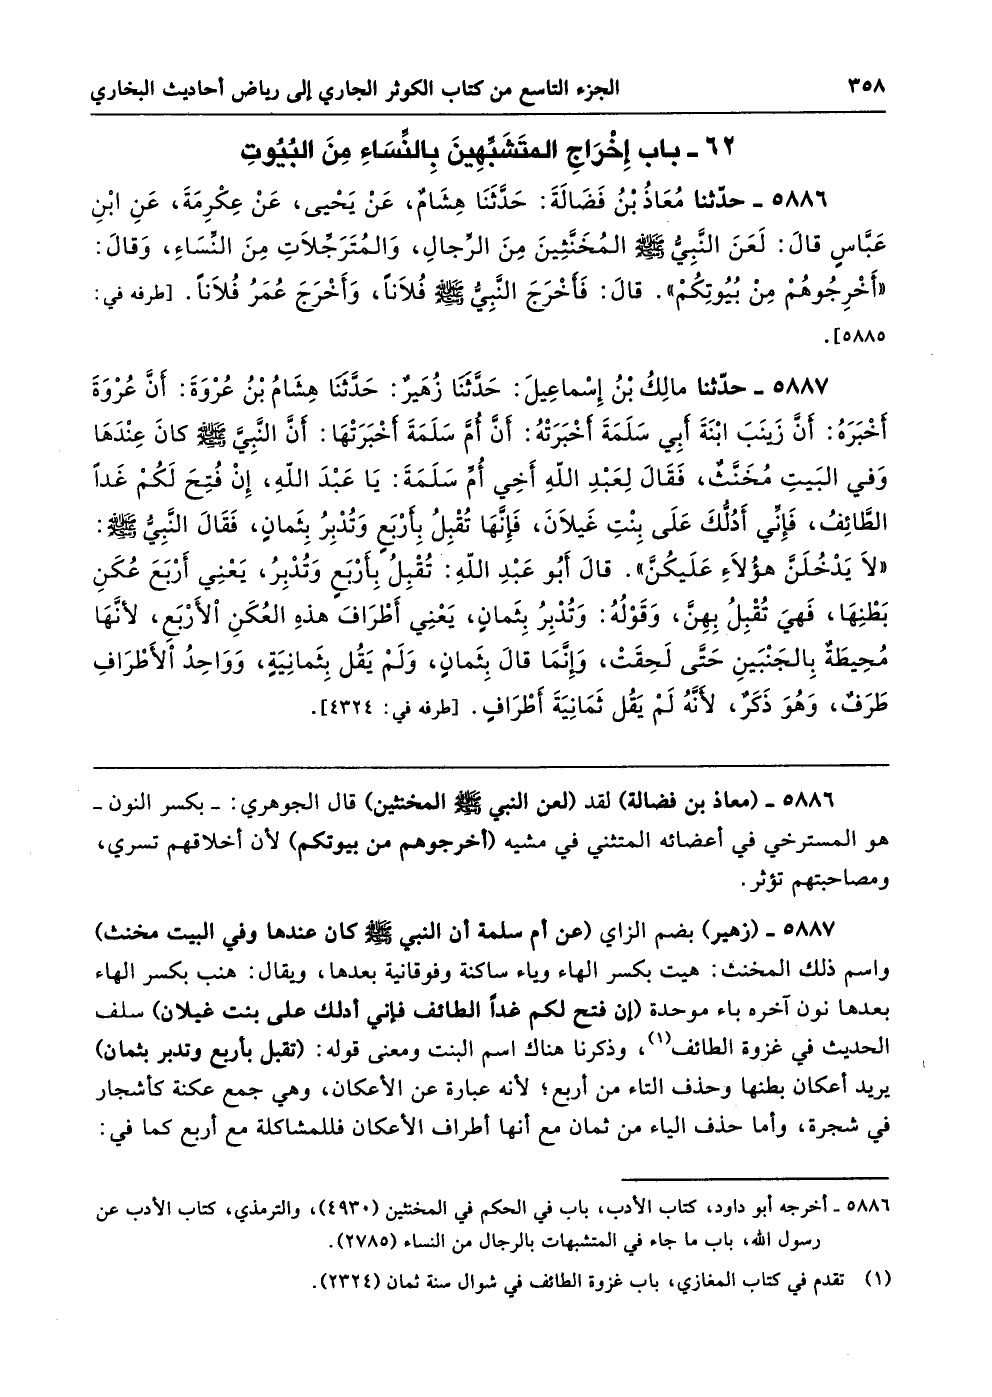 ٣٥٨ الجزء التاسع من كتاب الكوثر الجاري إلى رياض أحاديث البخاري
٦٢ ـ باب إِخْرَاجِ المتَشَبِّهِينَ بِالنِّسَاءِ مِنَ البُيُوتِ
٥٨٨٦ ـ حدّثنا مُعَاذُ بْنُ فَضَالَةَ: حَدَّثَنَا هِشَامٌ، عَنْ يَحْيى، عَنْ عِكْرِمَةَ، عَنِ ابْنِ
عَبَّاسٍ قالَ: لَعَنَ النَّبِيُّ ﷺ المُخَنَّثِينَ مِنَ الرِّجالِ، وَالمُتَرَجِّلَاتِ مِنَ النِّسَاءِ، وَقالَ:
«أَخْرِجُوهُمْ مِنْ بُيُوتِكُمْ». قالَ: فَأَخْرَجَ النَّبِيُّ ﷺ فُلَاناً، وَأَخْرَجَ عُمَرُ فُلَاناً. [طرفه في:
٥٨٨٥].
٥٨٨٧ ـ حدّثنا مالِكُ بْنُ إِسْماعِيلَ: حَدَّثَنَا زُهَيرٌ: حَدَّثَنَا هِشَامُ بْنُ عُرْوَةَ: أَنَّ عُرْوَةَ
أَخْبَرَهُ: أَنَّ زَينَبَ ابْنَةَ أَبِي سَلَمَةَ أَخْبَرَتْهُ: أَنَّ أُمَّ سَلَمَةَ أَخْبَرَتْهَا: أَنَّ النَّبِيَّ ﷺ كانَ عِنْدَهَا
وَفي البَيتِ مُخَنَّثٌ، فَقَالَ لِعَبْدِ اللّهِ أَخِي أُمِّ سَلَمَةَ: يَا عَبْدَ اللّهِ، إِنْ فُتِحَ لَكُمْ غَداً
الطَّائِفُ، فَإِنِّي أَدُلُّكَ عَلَى بِنْتِ غَيلَانَ، فَإِنَّهَا تُقْبِلُ بِأَرْبَعٍ وَتُدْبِرُ بِثَمانٍ، فَقَالَ النَّبِيُّ ﷺ:
«لَا يَدْخُلَنَّ هؤُلَاءِ عَلَيكُنَّ». قالَ أَبُو عَبْدِ اللّهِ: تُقْبِلُ بِأَرْبَعٍ وَتُدْبِرُ، يَعْنِي أَرْبَعَ عُكَنِ
بَطْنِهَا، فَهيَ تُقْبِلُ بِهِنَّ، وَقَوْلُهُ: وَتُدْبِرُ بِثَمانٍ، يَعْنِي أَطْرَافَ هذهِ العُكَنِ الْأَرْبَعِ، لأَنَّهَا
مُحِيطَةٌ بِالجَنْبَينِ حَتَّى لَحِقَتْ، وَإِنَّمَا قالَ بِثَمانٍ، وَلَمْ يَقُل بِثَمانِيَةٍ، وَوَاحِدُ الْأَطْرَافِ
طَرَفٌ، وَهُوَ ذَكَرٌ، لأَنَّهُ لَمْ يَقُل ثَمَانِيَةَ أَطْرَافٍ. [طرفه في: ٤٣٢٤].
٥٨٨٦ ـ (معاذ بن فضالة) لقد (لعن النبي ﷺ المخنثين) قال الجوهري: ـ بكسر النون ـ
هو المسترخي في أعضائه المتثني في مشيه (أخرجوهم من بيوتكم) لأن أخلاقهم تسري،
ومصاحبتهم تؤثر.
٥٨٨٧ ـ (زهير) بضم الزاي (عن أم سلمة أن النبي ﷺ كان عندها وفي البيت مخنث)
واسم ذلك المخنث: هيت بكسر الهاء وياء ساكنة وفوقانية بعدها، ويقال: هنب بكسر الهاء
بعدها نون آخره باء موحدة (إن فتح لكم غداً الطائف فإني أدلك على بنت غيلان) سلف
الحديث في غزوة الطائف(١)، وذكرنا هناك اسم البنت ومعنى قوله: (تقبل بأربع وتدبر بثمان)
يريد أعكان بطنها وحذف التاء من أربع؛ لأنه عبارة عن الأعكان، وهي جمع عكنة كأشجار
في شجرة، وأما حذف الياء من ثمان مع أنها أطراف الأعكان فللمشاكلة مع أربع كما في:
٥٨٨٦ ـ أخرجه أبو داود، كتاب الأدب، باب في الحكم في المخنثين (٤٩٣٠)، والترمذي، كتاب الأدب عن
رسول الله، باب ما جاء في المتشبهات بالرجال من النساء (٢٧٨٥).
(١) تقدم في كتاب المغازي، باب غزوة الطائف في شوال سنة ثمان (٢٣٢٤).